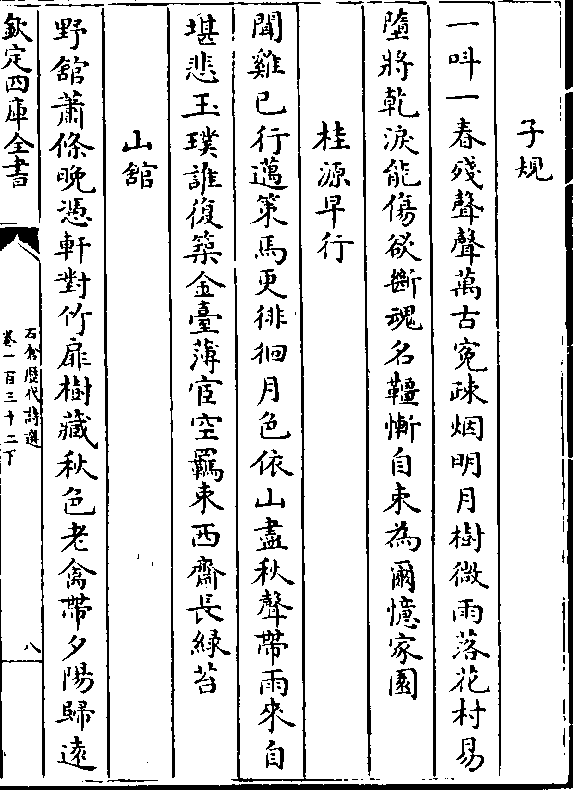 子規
一呌一春殘聲聲萬古寃疎烟明月樹微雨落花村易
墮將乾淚能傷欲斷魂名韁慚自束為爾憶家園
桂源早行
聞雞已行邁策馬更徘徊月色依山盡秋聲帶雨來自
堪悲玉璞誰復築金臺薄宦空羈束西齋長綠苔
山舘
野舘蕭條晚憑軒對竹扉樹藏秋色老禽帶夕陽歸遠
欽定四庫全書
石倉歷代詩選
卷一百三十二下
八